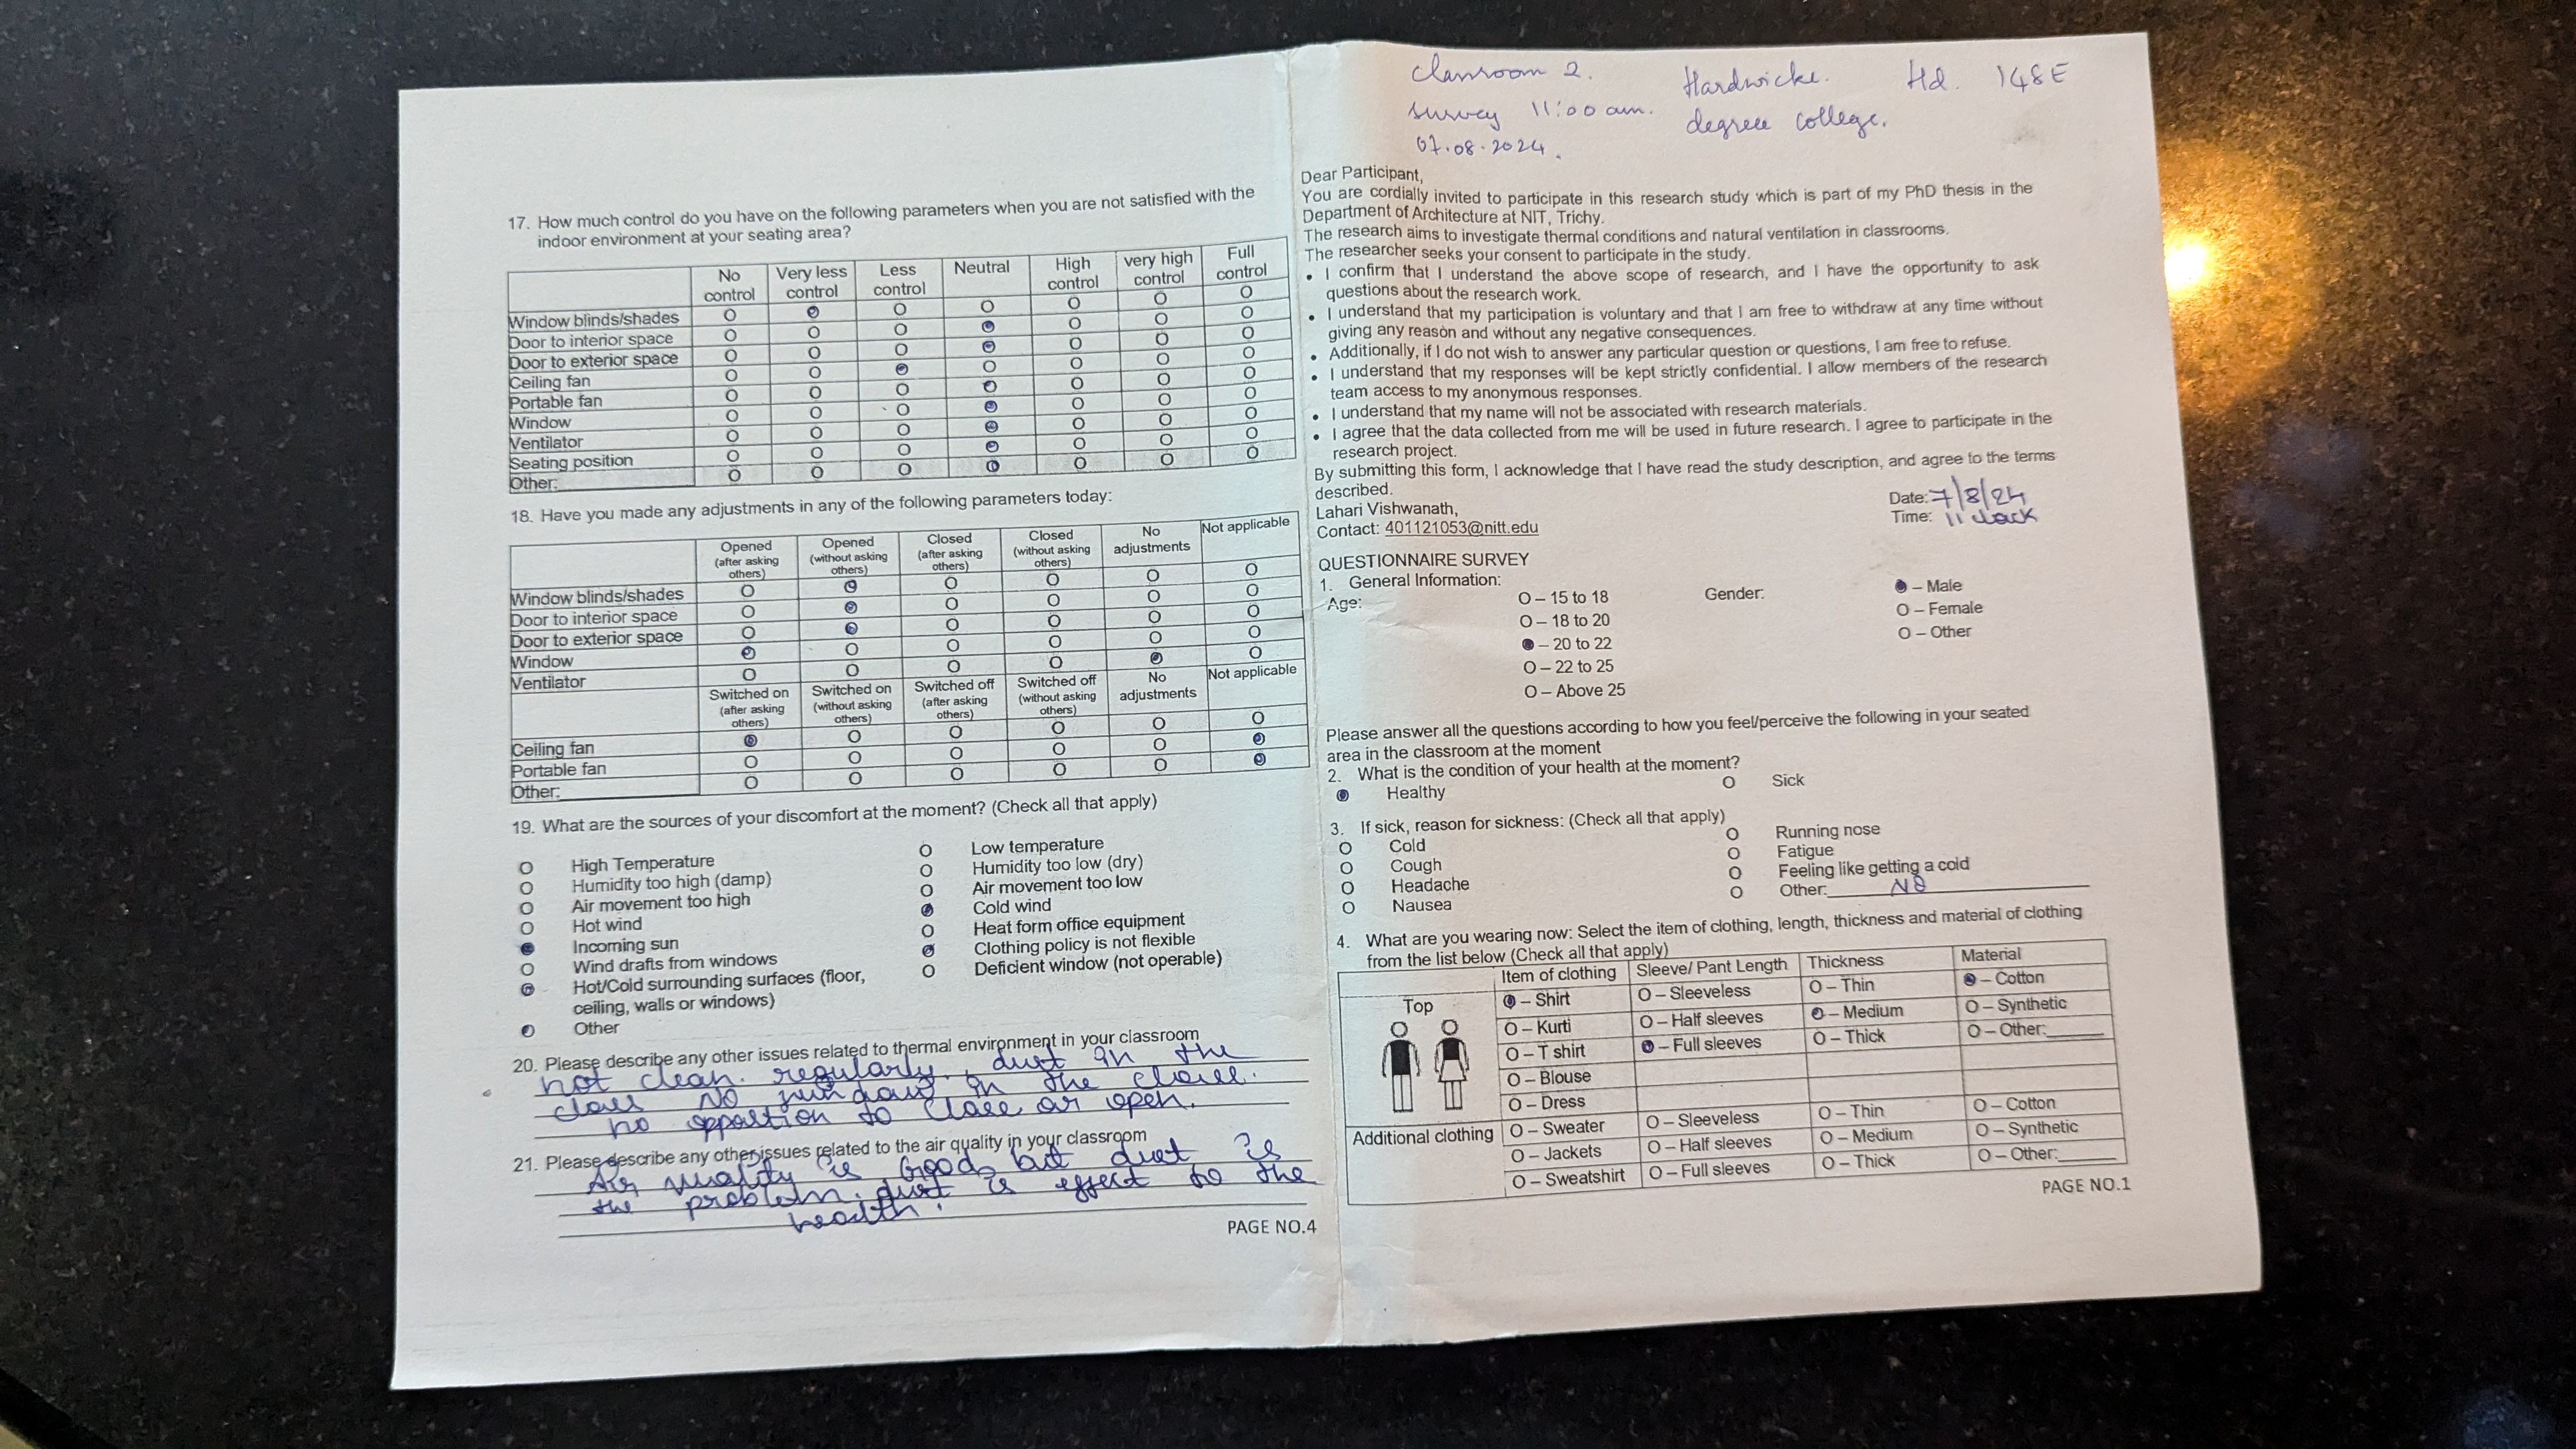 17. How much control do you have on the following parameters when you are not satisfied with the
indoor environment at your seating area?
No control Very less control Less control Neutral High control very high control Full control
Window blinds/shades O O O O O O O
Door to interior space O O O O O O O
Door to exterior space O O O O O O O
Ceiling fan O O O O O O O
Portable fan O O O O O O O
Window O O O O O O O
Ventilator O O O O O O O
Seating position O O O O O O O
Other: O O O O O O O
18. Have you made any adjustments in any of the following parameters today:
Opened (after asking others) Opened (without asking others) Closed (after asking others) Closed (without asking others) No adjustments Not applicable
Window blinds/shades O O O O O O
Door to interior space O O O O O O
Door to exterior space O O O O O O
Window O O O O O O
Ventilator O O O O O O
Switched on (after asking others) Switched on (without asking others) Switched off (after asking others) Switched off (without asking others) No adjustments Not applicable
Ceiling fan O O O O O O
Portable fan O O O O O O
Other: O O O O O O
19. What are the sources of your discomfort at the moment? (Check all that apply)
O High Temperature O Low temperature
O Humidity too high (damp) O Humidity too low (dry)
O Air movement too high O Air movement too low
O Hot wind O Cold wind
O Incoming sun O Heat form office equipment
O Wind drafts from windows O Clothing policy is not flexible
O Hot/Cold surrounding surfaces (floor, O Deficient window (not operable)
ceiling, walls or windows)
O Other
20. Please describe any other issues related to thermal environment in your classroom
not clean. regularly. dust in the
class NO in the
no to close or open.
21. Please describe any other issues related to the air quality in your classroom
Air quality is Good, but dust is
the problem. dust is effect to the
health.
PAGE NO.4
classroom 2. Hardwicke. Hd. 148E
survey 11:00 am. degree college.
07.08.2024.
Dear Participant,
You are cordially invited to participate in this research study which is part of my PhD thesis in the
Department of Architecture at NIT, Trichy.
The research aims to investigate thermal conditions and natural ventilation in classrooms.
The researcher seeks your consent to participate in the study.
• I confirm that I understand the above scope of research, and I have the opportunity to ask
questions about the research work.
• I understand that my participation is voluntary and that I am free to withdraw at any time without
giving any reason and without any negative consequences.
• Additionally, if I do not wish to answer any particular question or questions, I am free to refuse.
• I understand that my responses will be kept strictly confidential. I allow members of the research
team access to my anonymous responses.
• I understand that my name will not be associated with research materials.
• I agree that the data collected from me will be used in future research. I agree to participate in the
research project.
By submitting this form, I acknowledge that I have read the study description, and agree to the terms
described.
Lahari Vishwanath, Date: 7/8/24
Contact: 401121053@nitt.edu Time: 11 clock
QUESTIONNAIRE SURVEY
1. General Information:
Age: O – 15 to 18 Gender: O – Male
O – 18 to 20 O – Female
O – 20 to 22 O – Other
O – 22 to 25
O – Above 25
Please answer all the questions according to how you feel/perceive the following in your seated
area in the classroom at the moment
2. What is the condition of your health at the moment?
O Healthy O Sick
3. If sick, reason for sickness: (Check all that apply)
O Cold O Running nose
O Cough O Fatigue
O Headache O Feeling like getting a cold
O Nausea O Other: NO
4. What are you wearing now: Select the item of clothing, length, thickness and material of clothing
from the list below (Check all that apply)
Item of clothing Sleeve/ Pant Length Thickness Material
Top O – Shirt O – Sleeveless O – Thin O – Cotton
O – Kurti O – Half sleeves O – Medium O – Synthetic
O – T shirt O – Full sleeves O – Thick O – Other:
O – Blouse
O – Dress
Additional clothing O – Sweater O – Sleeveless O – Thin O – Cotton
O – Jackets O – Half sleeves O – Medium O – Synthetic
O – Sweatshirt O – Full sleeves O – Thick O – Other:
PAGE NO.1